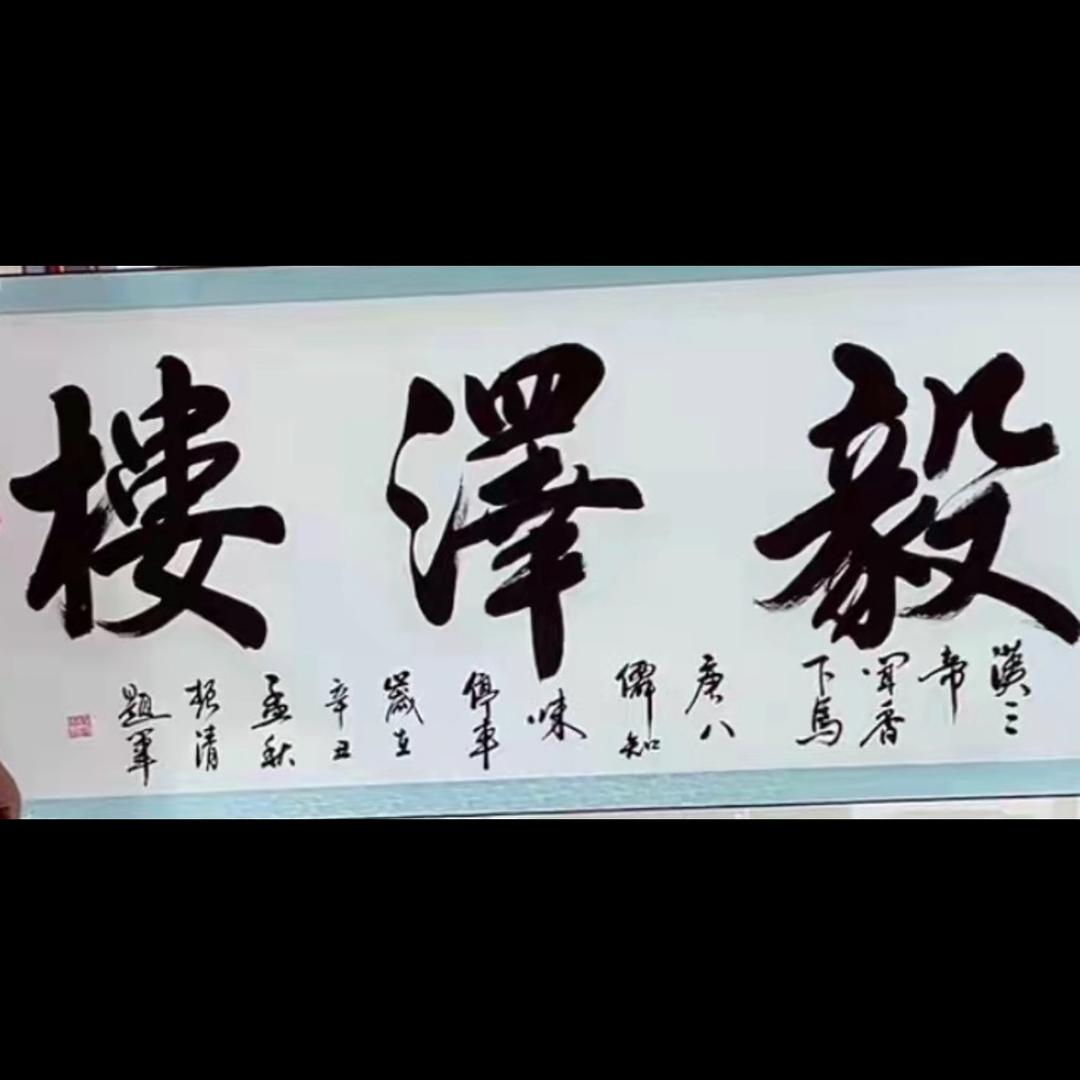 毅澤樓
漢三
帝
聞香
下馬
唐八
僊知
味
停車
歲在
辛丑
孟秋
振清
題